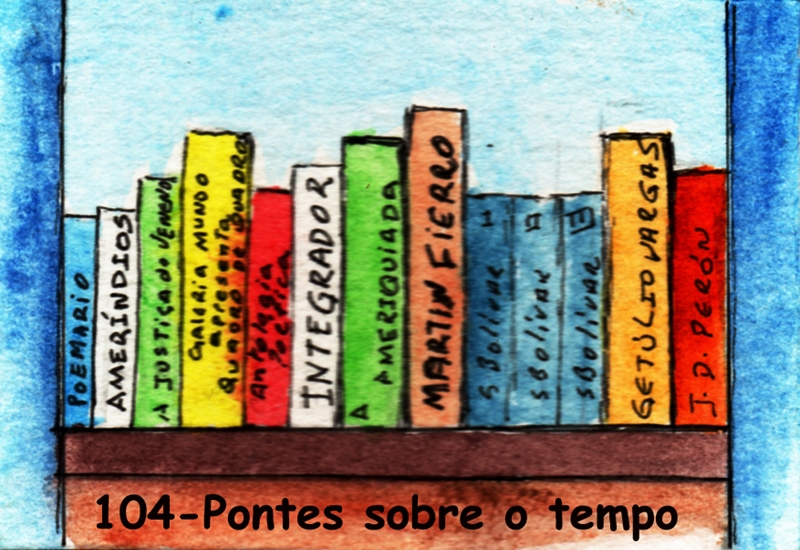 POEMARIO
AMERÍNDIOS
A JUSTIÇA do VENENO
Galeria MUNDO
apresenta
QUADRO DE QUADROS
Antologia
Poética
INTEGRADOR
A AMERIQUIADA
MARTIN FIERRO
S Bolivar I
S Bolívar II
S Bolívar III
GETÚLIO VARGAS
J. D. PERÓN
104-Pontes sobre o tempo